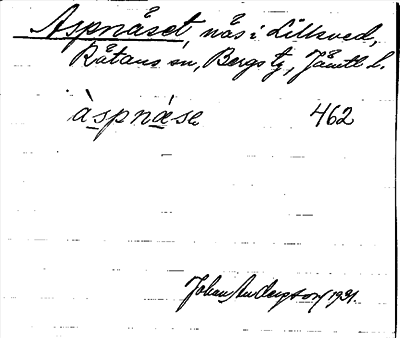 Aspnäset, näs i Lillsved,
Råtans sn, Bergs tg, Jämtl l.
àspnàse 462
Johan Andersson 1931.